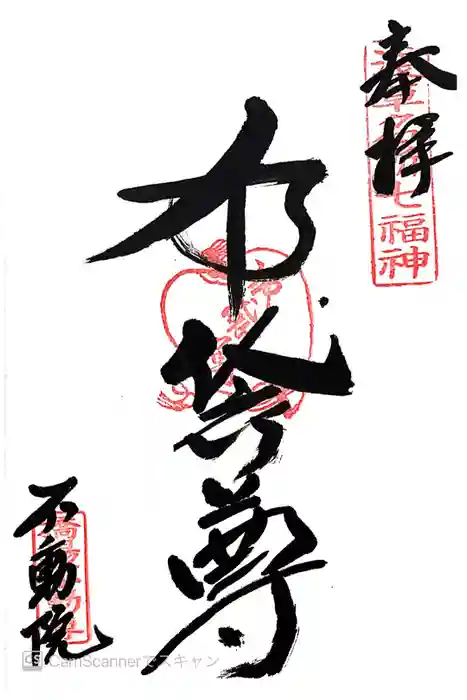 奉拝
七福神
布袋尊
不動院
CamScannerでスキャン